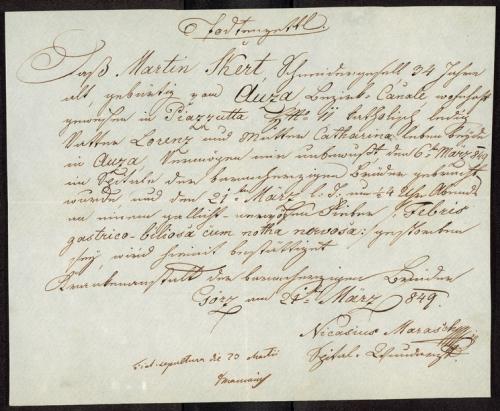 Todtenzettl.
Daß Martin Skert, Schneidergesell 34 Jahre
alt, gebürtig von Auza Bezirk Canale wohnhaft
gewesen in Piazzutta N 11 katholisch ledig
Vatter Lorenz und Mutter Catharina leben beyde
in Auza, Vermögen mir unbewußt den 6ten März 849
im Spitale der barmherzigen Brüder gebracht
wurde, und den 21ten März l. J. um 4 Uhr Abends
an einem gallicht-nervösen Fieber: Febris
gastrico-biliosa cum notha nervosa: gestorben
sey, wird hiemit bestättiget
Krankenanstalt der barmherzigen Brüder
Görz am 21ten März 1849.
Nicasius
Spital-
sepulturae die 23 Martii